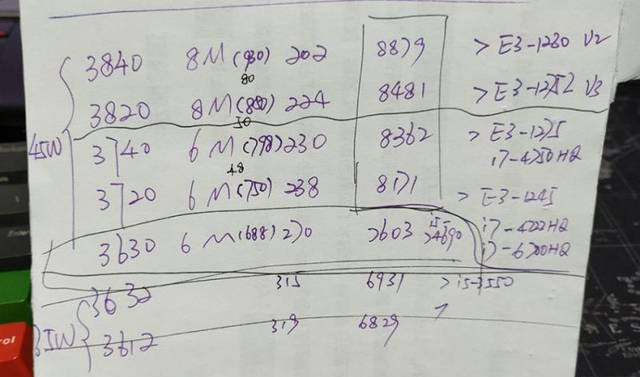 3840 8M (930) 202 8879 > E3-1230 V2
80
3820 8M (880) 224 8481 > E3-1252 V3
50
45W
3740 6M (798) 230 8362 > E3-1275
i7-4750HQ
48
3720 6M (750) 238 8171 > E3-1245
i7-4722HQ
3630 6M (688) 270 7603 i5-4690 i7-6700HQ
3632 315 6931 > i5-3550
35W
3612 319 6829
rol